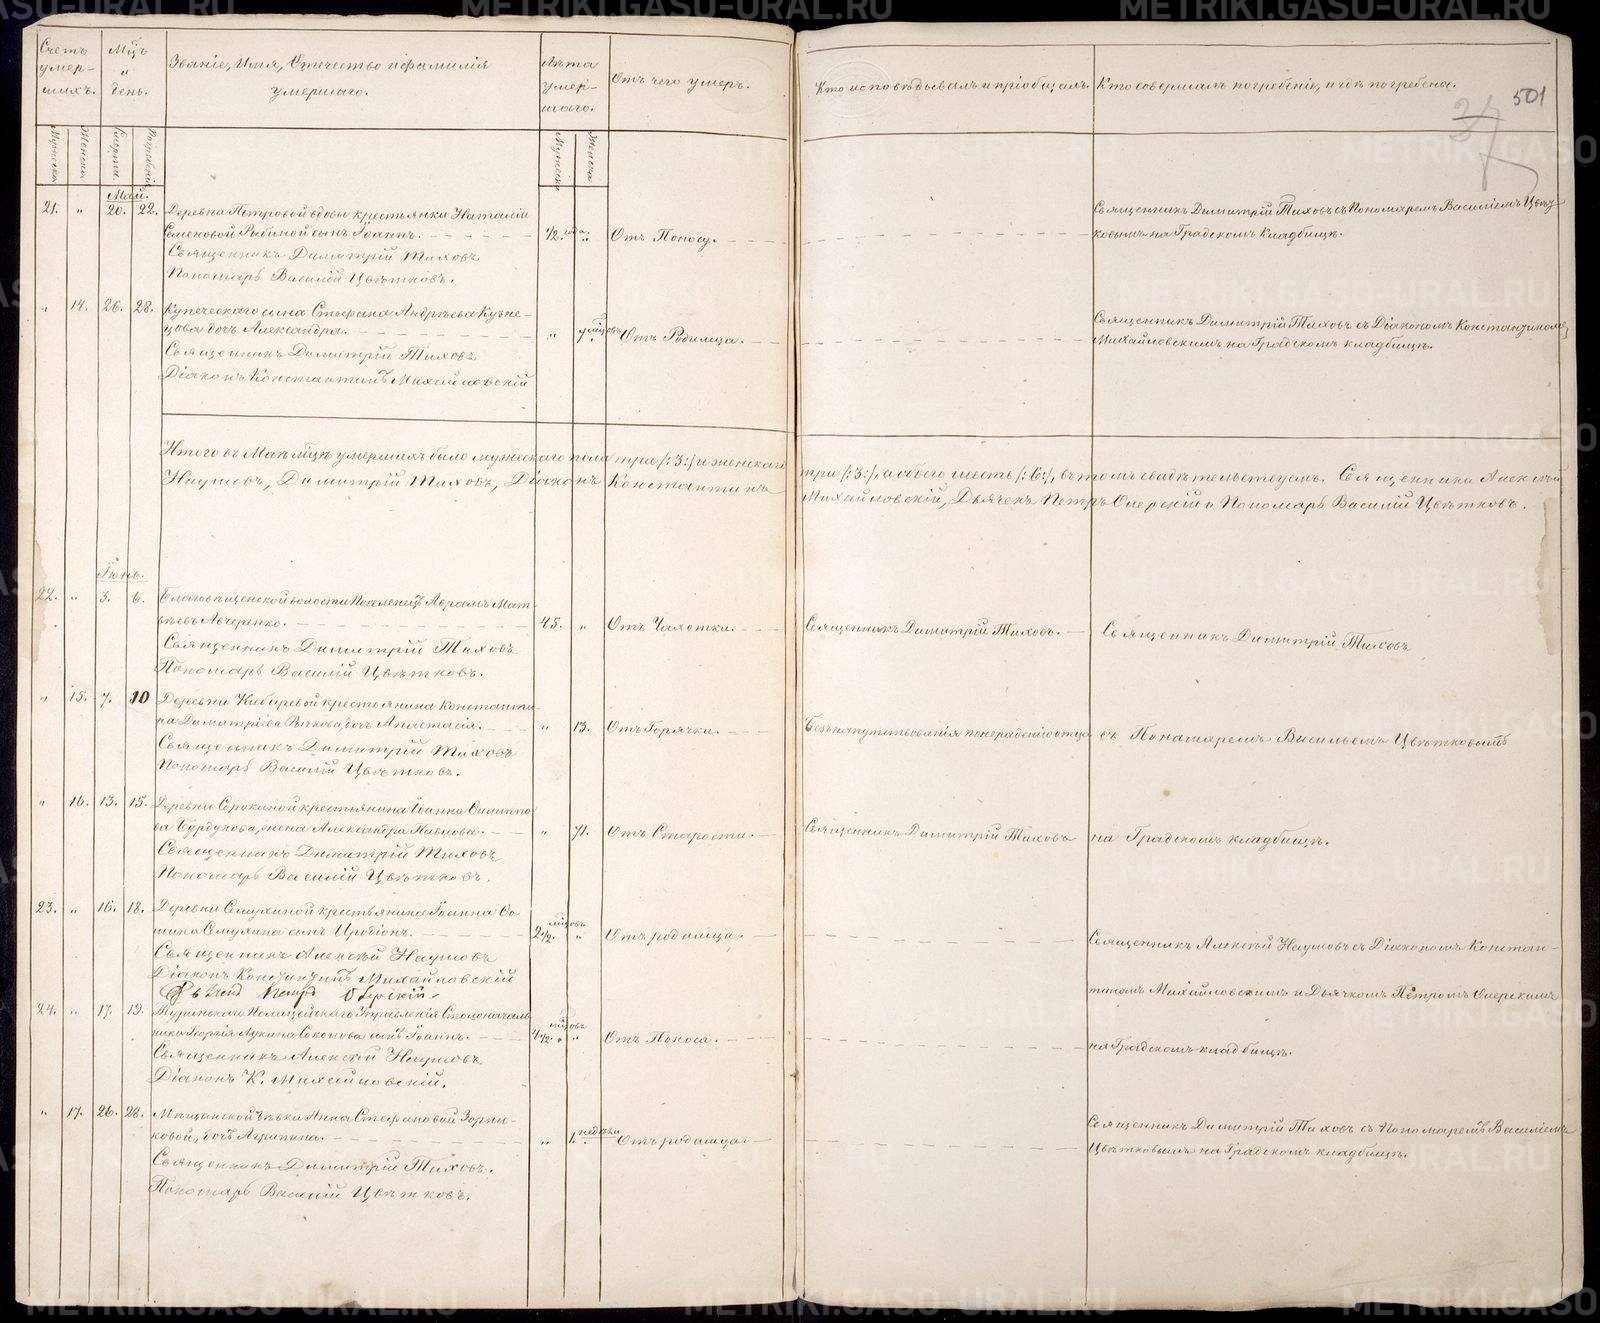 Счетъ умер-шихъ.
Мцъ и день.
Званіе, Имя, Отечество и фамилія
умершаго.
Лѣта умер-шаго.
Отъ чего умеръ.
Кто исповѣдывалъ и пріобщалъ.
Кто совершалъ погребеніе, и гдѣ погребены.
501
Мужеска
Женска
Смерти.
Погребенія
Мужеска
Женска
Май.
21. „ 20. 22. Деревни Петровой вдовы крестьянки Наталіи
Семеновой Рыбиной сынъ Іоаннъ.
1/2. года. „ Отъ Поносу.
Священникъ Димитрій Тиховъ съ Пономаремъ Василіемъ Цвѣт-
ковымъ на Градскомъ Кладбищѣ.
Священникъ Димитрій Тиховъ
Пономарь Василій Цвѣтковъ.
„ 14. 26. 28. Купеческаго сына Стефана Андрѣева Кузне-
цова дочь Александра.
„ 7 мцовъ Отъ Родимца.
Священникъ Димитрій Тиховъ съ Діакономъ Константиномъ
Михайловскимъ на Градскомъ кладбищѣ.
Священникъ Димитрій Тиховъ
Діаконъ Константинъ Михайловскій
Итого въ Маѣ мцѣ умершихъ было мужескаго пола три /:3:/ и женскаго три /:3:/, а обоего шесть /:6:/, въ томъ свидѣтельствуемъ. Священники Алексѣй
Наумовъ, Димитрій Тиховъ, Діаконъ Константинъ Михайловскій, Дьячекъ Петръ Оперскій и Пономарь Василій Цвѣтковъ.
Іюнь.
22. „ 3. 6. Благовѣщенской волости Поселенецъ Аврамъ Мат-
вѣевъ Авгеренко.
45. „ Отъ Чахотки.
Священникъ Димитрій Тиховъ.
Священникъ Димитрій Тиховъ
Священникъ Димитрій Тиховъ
Пономарь Василій Цвѣтковъ.
„ 15. 7. 10 Деревни Кибиревой крестьянина Константи-
на Димитріева дочь Анастасія.
„ 13. Отъ Горячки.
Безъ напутствованія по нерадѣнію отца
съ Пономаремъ Васильемъ Цвѣтковымъ
Священникъ Димитрій Тиховъ
Пономарь Василій Цвѣтковъ.
„ 16. 13. 15. Деревни Сорокиной крестьянина Іоанна Филиппо-
ва Бурдукова, жена Александра Павлова.
„ 71. Отъ Старости.
Священникъ Димитрій Тиховъ
на Градскомъ кладбищѣ.
Священникъ Димитрій Тиховъ
Пономарь Василій Цвѣтковъ.
23. „ 16. 18. Деревни Смухиной крестьянина Іоанна Фо-
мина Смухина сынъ Иродіонъ.
2 1/2. мцовъ „ Отъ родимца.
Священникъ Алексѣй Наумовъ съ Діакономъ Констан-
Священникъ Алексѣй Наумовъ
Діаконъ Константинъ Михайловскій
Петръ Оперскій
тиномъ Михайловскимъ и Дьячкомъ Петромъ Оперскимъ
24. „ 17. 19. Туринскаго Полицейскаго Управленія Столоначаль-
ника Георгія Лукина Соколова сынъ Іоаннъ.
4 1/2. мцовъ „ Отъ Поноса.
на Градскомъ кладбищѣ.
Священникъ Алексѣй Наумовъ
Діаконъ К. Михайловскій.
„ 17. 26. 28. Мѣщанской дѣвки Анны Стефановой Зорни-
ковой, дочь Агрипина.
„ 1. недѣли Отъ родимца.
Священникъ Димитрій Тиховъ съ Пономаремъ Василіемъ
Цвѣтковымъ на Градскомъ кладбищѣ.
Священникъ Димитрій Тиховъ.
Пономарь Василій Цвѣтковъ.
METRIKI.GASO-URAL.RU